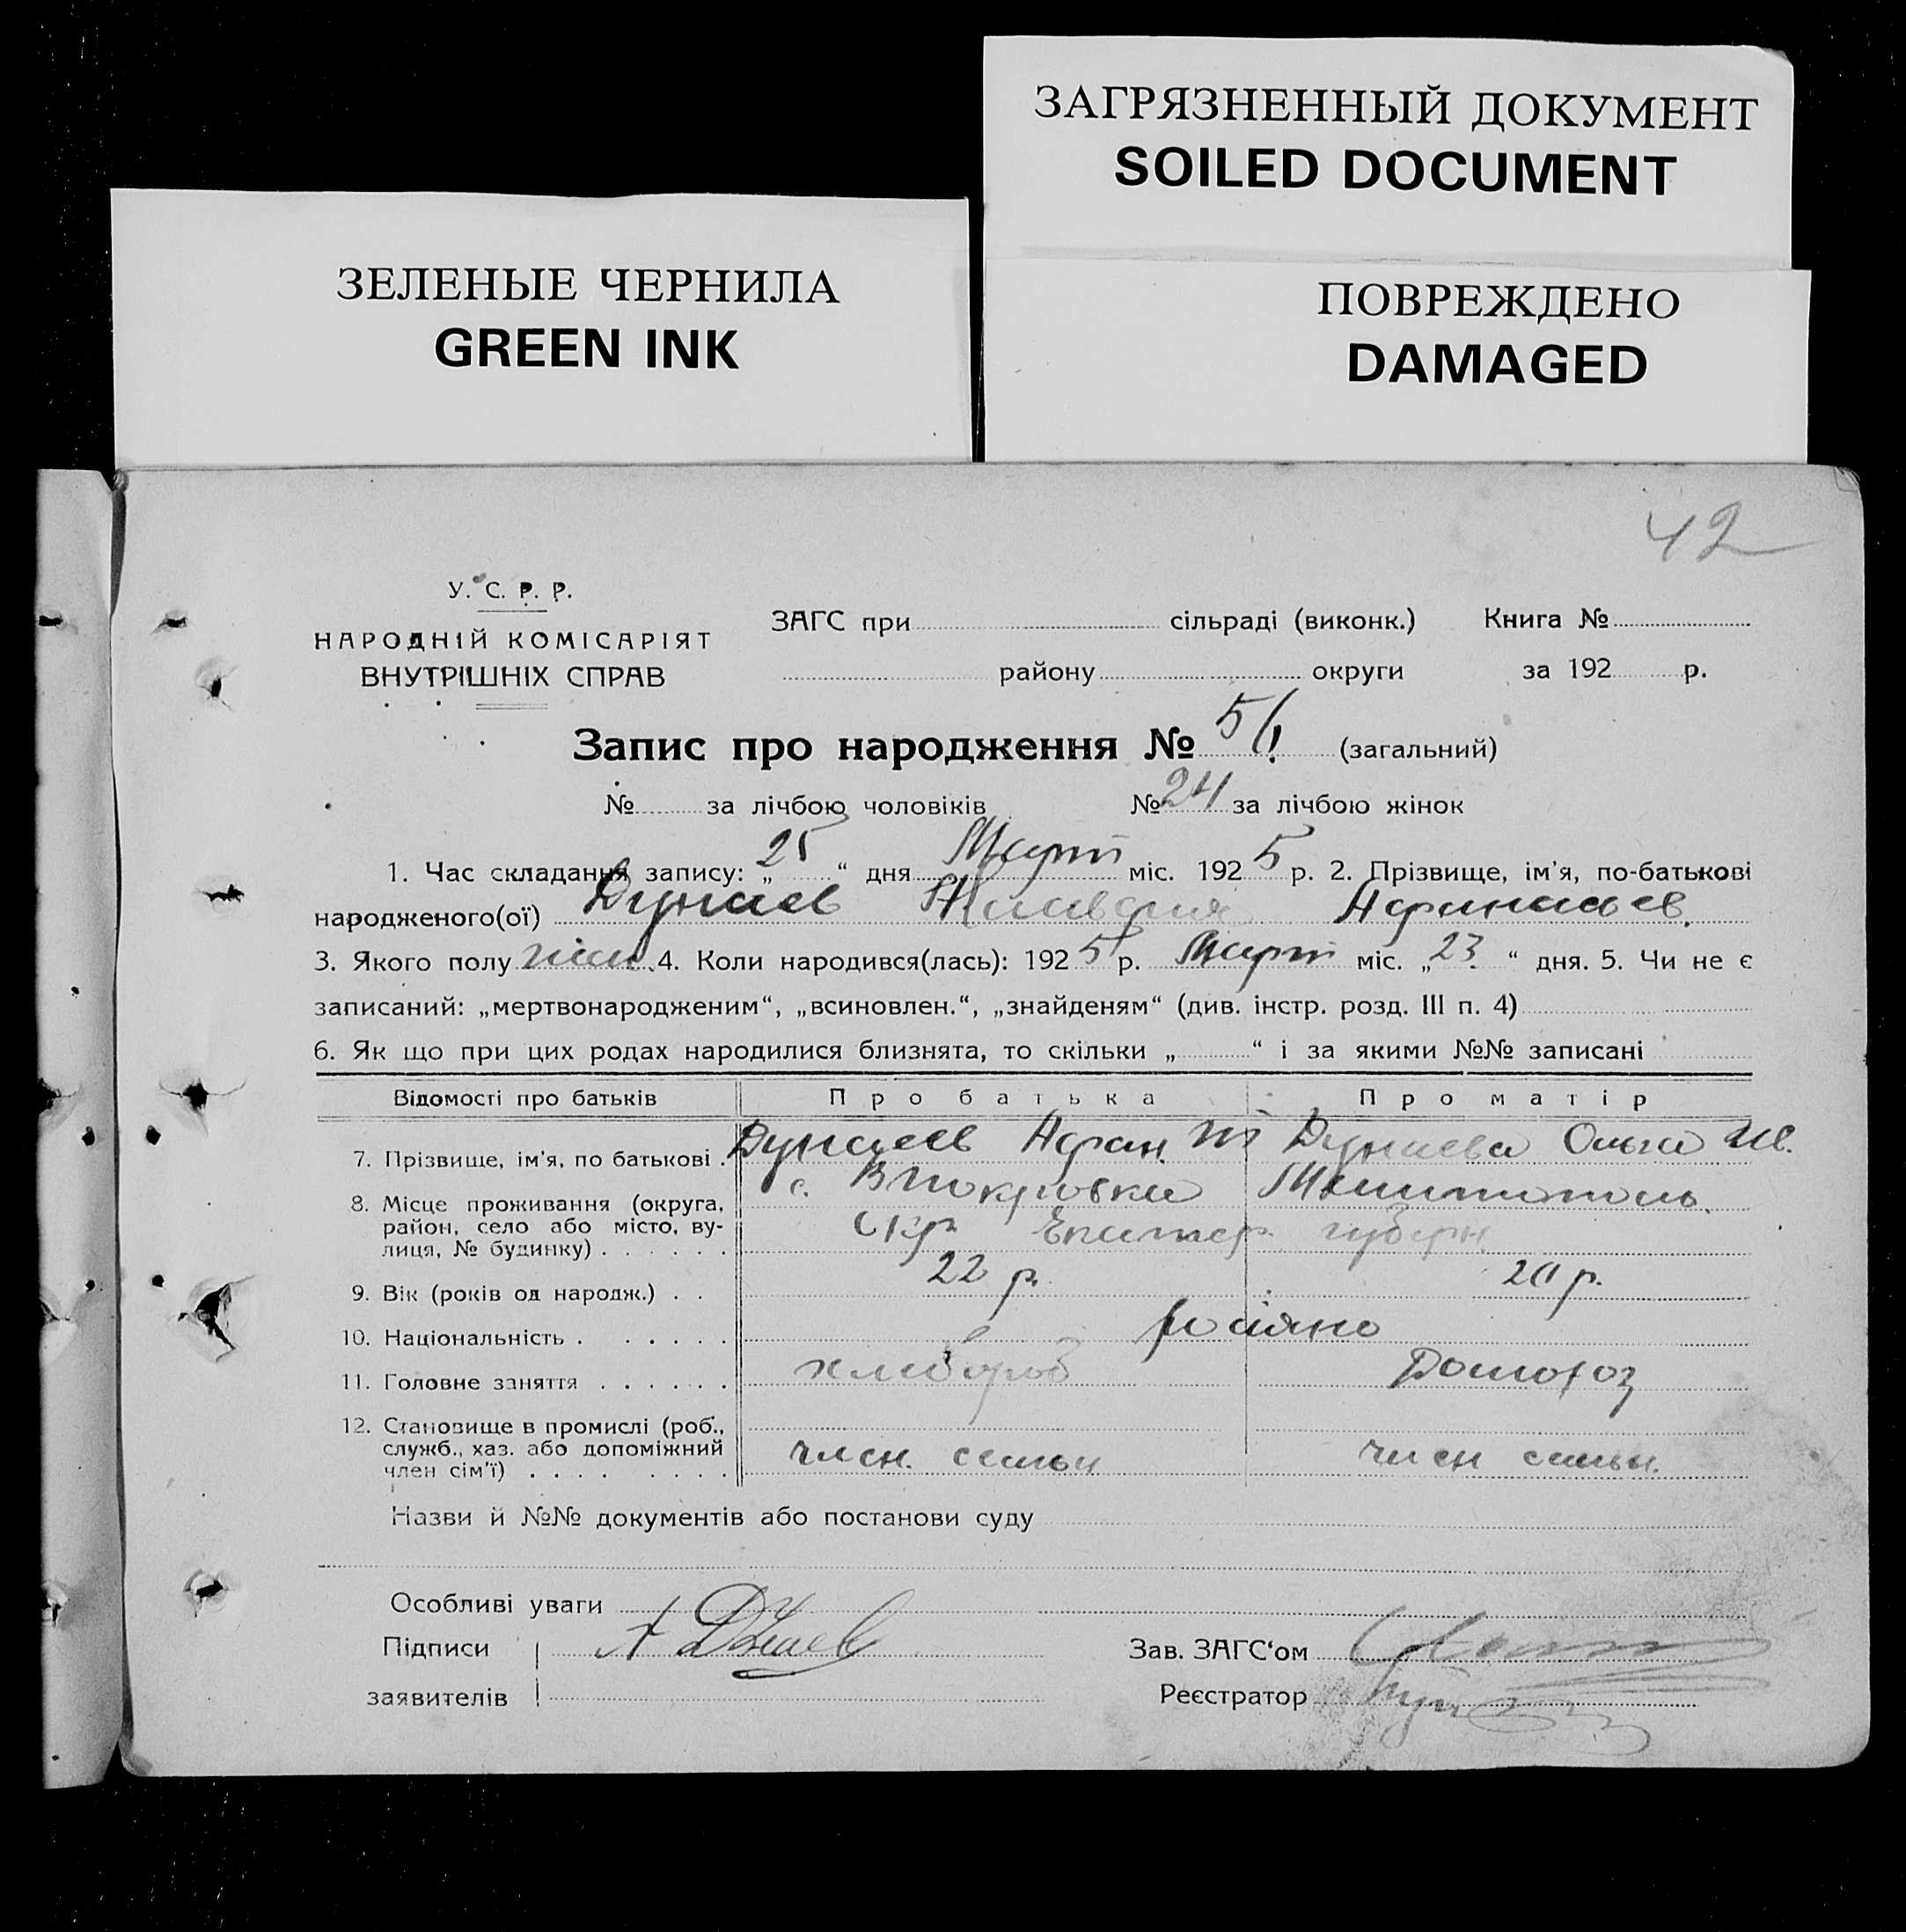 ЗАГРЯЗНЕННЫЙ ДОКУМЕНТ
SOILED DOCUMENT
ЗЕЛЕНЫЕ ЧЕРНИЛА
GREEN INK
ПОВРЕЖДЕНО
DAMAGED
42
У. С. Р. Р.
НАРОДНІЙ КОМІСАРІЯТ
ВНУТРІШНІХ СПРАВ
ЗАГС при сільраді (виконк.) Книга №
району округи за 192 р.
Запис про народження № (загальний)
№ за лічбою чоловіків № 24 за лічбою жінок
1. Час складання запису: „25“ дня Март міс. 1925 р. 2. Прізвище, ім'я, по-батькові
народженого(ої) Дунаев
3. Якого полу жін. 4. Коли народився(лась): 1925 р. Март міс. „23“ дня. 5. Чи не є
записаний: „мертвонародженим“, „всиновлен.“, „знайденям“ (див. інстр. розд. III п. 4)
6. Як що при цих родах народилися близнята, то скільки „ “ і за якими №№ записані
Відомості про батьків Про батька Про матір
7. Прізвище, ім'я, по батькові . Дунаев Афан. Дунаева Ольга Ив.
8. Місце проживання (округа, с. Покровка
район, село або місто, ву- окр Екатер. губерн.
лиця, № будинку) . . . . . .
9. Вік (років од народж.) . . 22 р. р.
10. Національність . . . . . .
11. Головне заняття . . . . . . хлебороб
12. Становище в промислі (роб.,
служб., хаз. або допоміжний член. семьи член семьи.
член сім'ї) . . . . . . . .
Назви й №№ документів або постанови суду
Особливі уваги
Підписи А Дунаев Зав. ЗАГС‘ом
заявителів Реєстратор